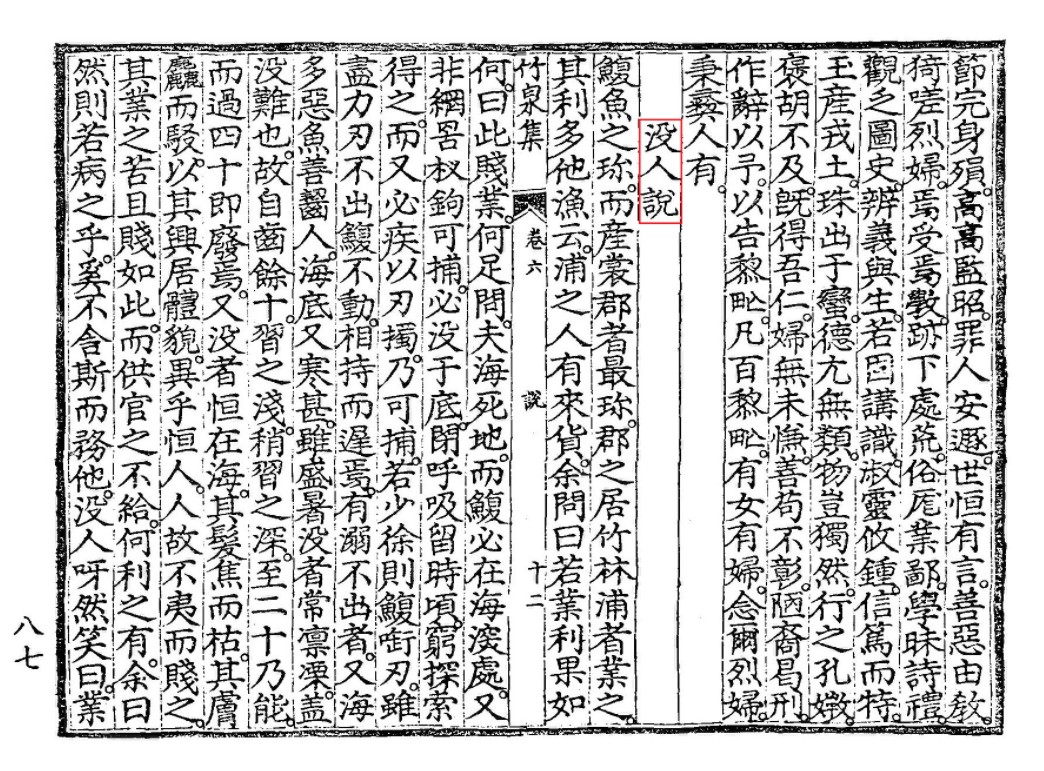 節完身殞。高高監昭。罪人安遯。世恒有言。善惡由敎。
猗嗟烈婦。焉受焉斅。跡下處荒。俗厖業鄙。學昧詩禮。
觀乏圖史。辨義與生。若因講識。淑靈攸鍾。信篤而特。
玉産戎土。珠出于蠻。德尢無類。物豈獨然。行之孔媺。
褒胡不及。旣得吾仁。婦無未慊。善苟不彰。陋裔曷刑。
作辭以予。以告黎甿。凡百黎甿。有女有婦。念爾烈婦。
秉彜人有。
没人說
鰒魚之珎。而産裳郡者最珎。郡之居竹林浦者業之。
其利多他漁云。浦之人有來貨。余問曰若業利果如
竹泉集
卷六
說
十二
何。曰此賤業。何足問。夫海死地。而鰒必在海湥處。又
非網罟杈鉤可捕。必没于底。閉呼吸留時頃。窮探索
得之。而又必疾以刃擉。乃可捕。若少徐則鰒嘀刃。雖
盡力刃不出鰒不動。相持而遲焉。有溺不出者。又海
多惡魚善齧人。海底又寒甚。雖盛暑没者常凛凓。盖
没難也。故自齒餘十。習之淺。稍習之深。至二十乃能。
而過四十卽廢焉。又没者恒在海。其髮焦而枯。其膚
麤而駁。以其興居體貌。異乎恒人。人故不夷而賤之。
其業之苦且賤如此。而供官之不給。何利之有。余曰
然則若病之乎。奚不舍斯而務他。没人呀然笑曰。業
八七